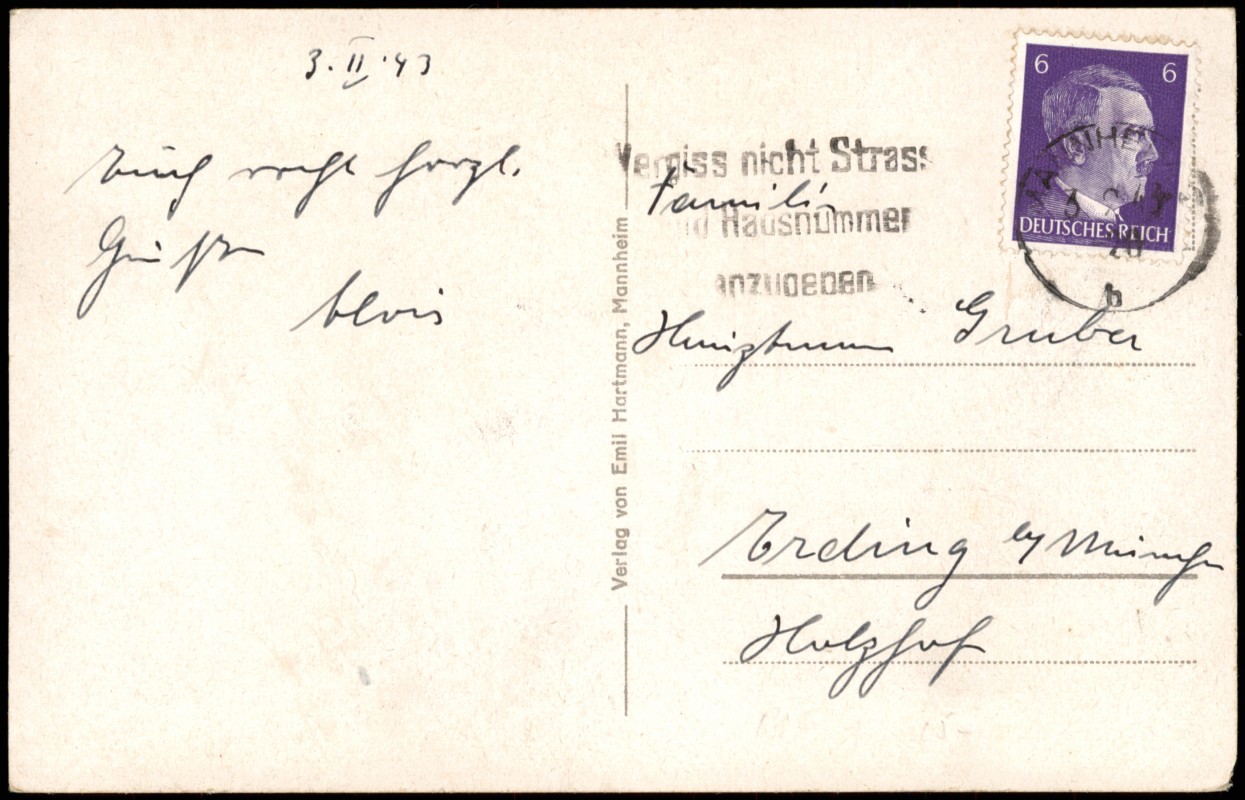 3. II. 43
Euch recht herzl.
Grüße
Alois
Verlag von Emil Hartmann, Mannheim
Vergiss nicht Strass
und Hausnummer
anzugeben
6 6
DEUTSCHES REICH
MANNHE
3 43
20
b
Familie
Gruber
Erding by München
Holzhof